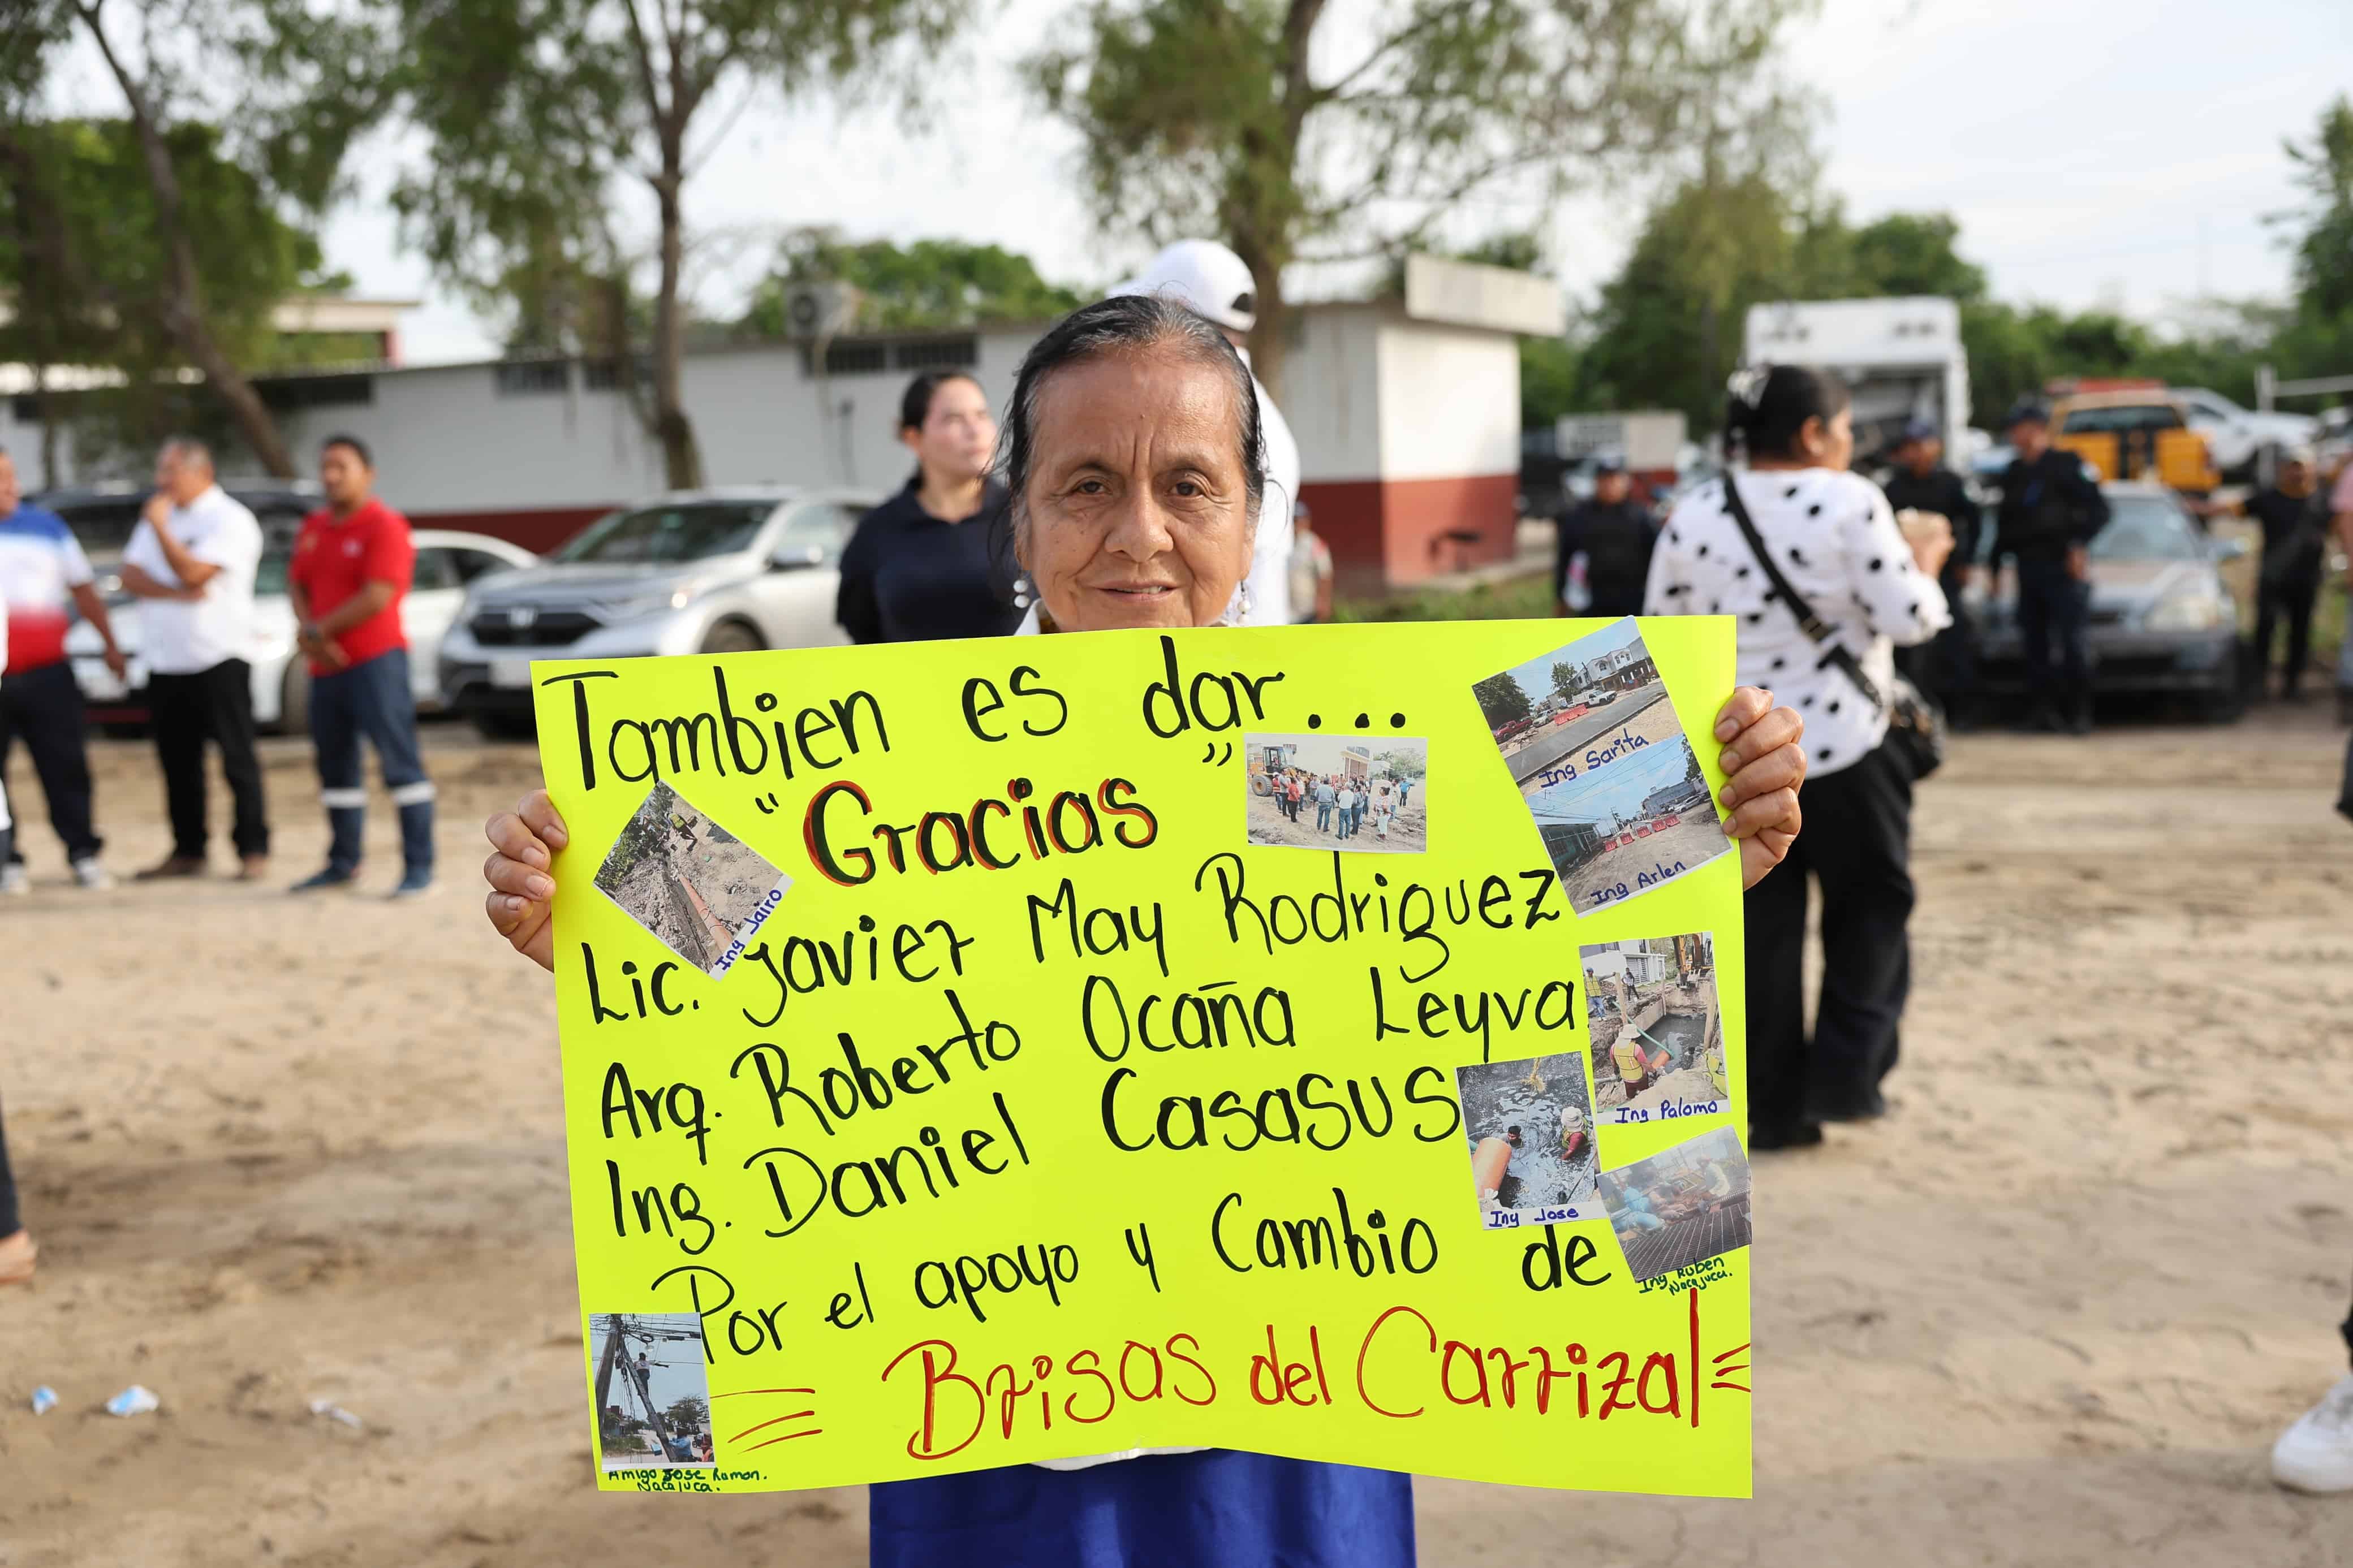 Tambien es dar...
"Gracias"
Lic. Javier May Rodriguez
Arq. Roberto Ocaña Leyva
Ing. Daniel Casasus
Por el apoyo y Cambio de
= Brisas del Carrizal =
Ing Jairo
Ing Sarita
Ing Arlen
Ing Palomo
Ing Jose
Ing Ruben
Nacajuca.
Amigo Jose Ramon.
Nacajuca.